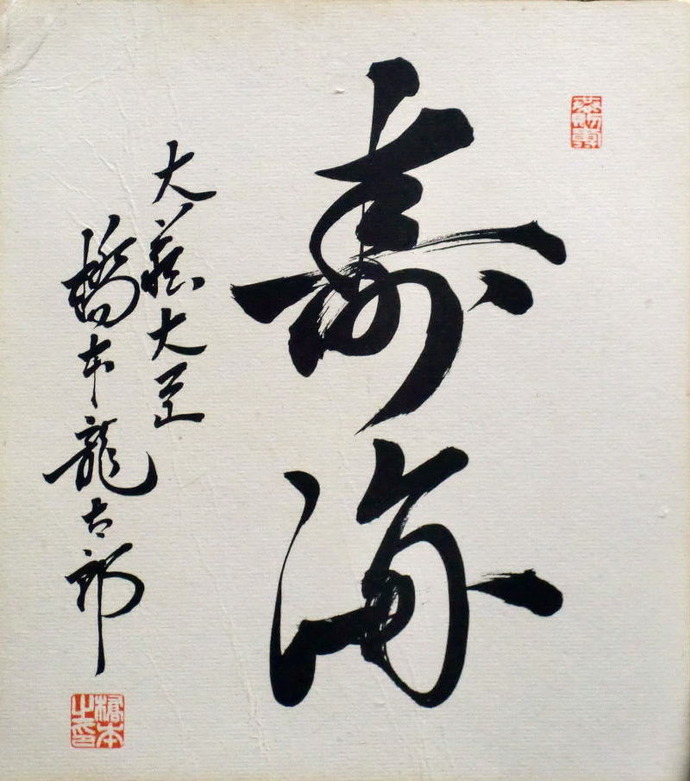 寿海
大蔵大臣
橋本龍太郎
橋本之印